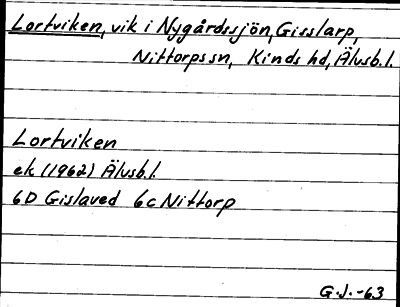 Lortviken, vik i Nygårdssjön, Gisslarp,
Nittorps sn, Kinds hd, Älvsb.l.
Lortviken
ek (1962) Älvsb.l.
6D Gislaved 6c Nittorp
G.J.-63